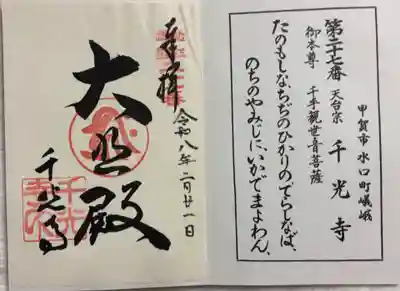 甲賀市水口町嶬峨
第二十七番 天台宗 千光寺
御本尊 千手観世音菩薩
たのもしなちぢのひかりのでらしなば、
のちのやみじに、いかでまよわん、
奉拝 令和八年二月廿一日
大悲殿
千光寺